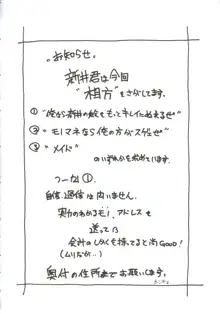 お知らせ。
新井君は今回
"相方"をさがしてます。
① "俺が新井の奴をもっとキレイにぬるぜ"
② "モノマネなら俺の方がスゲェぜ"
③ "メイド"
のいずれかを求めています。
つーか①。
自信・過信は問いません。
実力のあるモノ、アドレスを
送って
余計のしがらみも捨ててると尚Good!
(ムリだな…)
奥付の住所までお願いします。